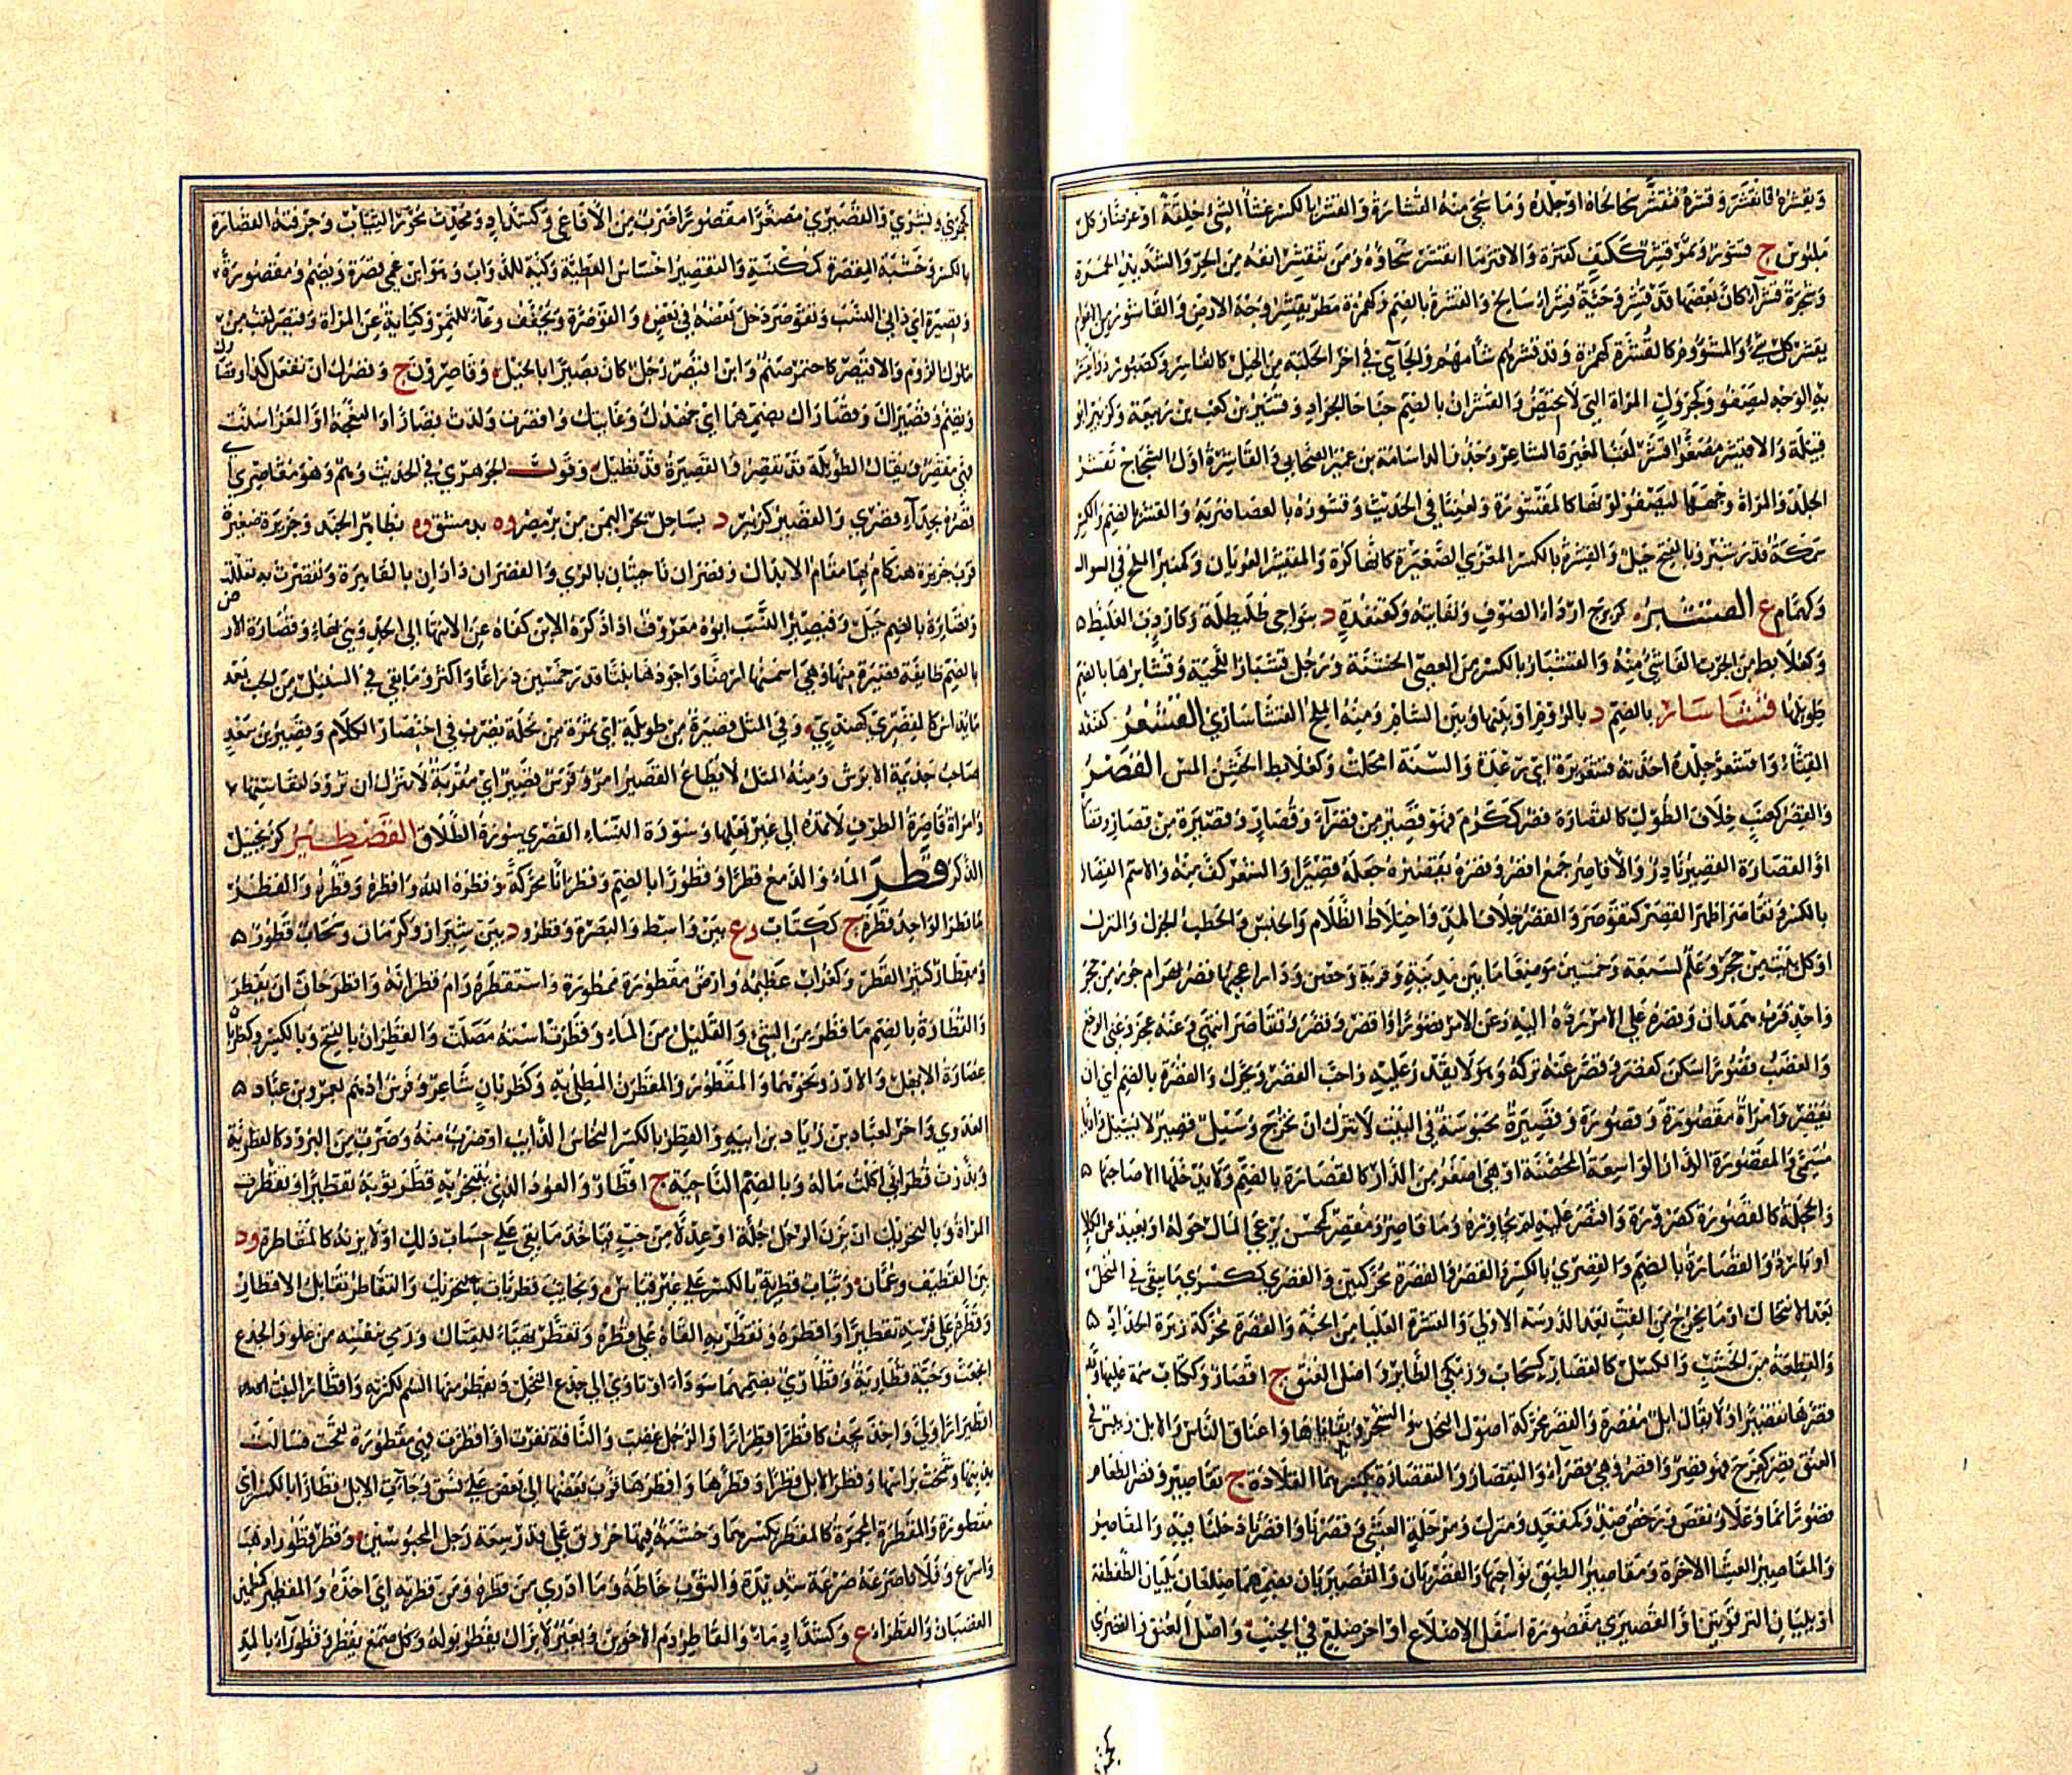 ويقشره فانقشر وقشره فتقشر سحا لحاه او جلده وما سحي منه القشارة والقشر بالكسر غشاء الشيء خلقة او عرضا وكل
ملبوس ج قشور وتمر قشر ككتف كثيره والاقشر ما انقشر سحاؤه ومن ينقشر انفه من الحر والشديد الحمرة
وشجرة قشراء كان بعضها قد قشر وحية قشراء سالخ والقشرة بالضم وكهمزة مطر يقشر وجه الارض والقاشور من العام
يقشر كل شيء والمشؤوم كالقشرة كهمزة وقد قشرهم شأمهم والجائي في اخر الحلبة من الخيل كالقاشر وكصبور دواء يقشر
به الوجه ليصفو وكجرول المراة التي لا تحيض والقشران بالضم جناحا الجراد وقشير بن كعب بن ربيعة وكزبير ابو
قبيلة والاقيشر مصغر اقشر لقب المغيرة الشاعر وجد والد اسامة بن عمير الصحابي والقاشرة اول الشجاج تقشر
الجلد والمراة وجهها ليصفو لونها كالمقشورة ولعنتا في الحديث وقشوره بالعصا ضربه والقشر بالضم والكسر
سمكة قدر شبر وبالفتح جبل والقشرة بالكسر المعزى الصغيرة كانها كرة والمقشر العريان وكمنبر الملح في السوال
وكهمام ع القشبر كزبرج اردأ الصوف ونفايته وكقنفذة د بنواحي طليطلة وكاردب الغليظ
وكعلابط من الجرب الفاشي منه والقشبار بالكسر من العصي الخشنة ورجل قشبار اللحية وقشابرها بالضم
طويلها قشاسار بالضم د بالروم او بينها وبين الشام ومنه الملح القشاساري القشعر كقنفذ
القثاء واقشعر جلده اخذته قشعريرة اي رعدة والسنة امحلت وكعلابط الخشن المس القصر
والقصر كعنب خلاف الطول كالقصارة قصر ككرم فهو قصير من قصراء وقصار وقصيرة من قصار وقصا
او القصارة القصير نادر والاقاصر جمع اقصر وقصره يقصره جعله قصيرا والشعر كف منه والاسم القصار
بالكسر وتقاصر اظهر القصر كتقوصر والقصر خلاف المد واختلاط الظلام والحبس والحطب الجزل والمنزل
او كل بيت من حجر وعلم لسبعة وخمسين موضعا ما بين مدينة وقرية وحصن ودار اعجبها قصر بهرام جور من حجر
واحد قرب همذان وقصره على الامر رده اليه وعن الامر قصورا واقصر وقصر وتقاصر انتهى وعنه عجز وعني الوجع
والغضب قصورا سكن كقصر وقصر عنه تركه وهو لا يقدر عليه واحب القصر ويحرك والقصرة بالضم اي ان
تقصر وامراة مقصورة وقصورة وقصيرة محبوسة في البيت لا تترك ان تخرج وسيل قصير لا يسيل واديا
مسمى والمقصورة الدار الواسعة المحصنة او هي اصغر من الدار كالقصارة بالضم ولا يدخلها الا صاحبها
والحجلة كالقصورة كصرورة واقتصر عليه لم يجاوزه وماء قاصر ومقصر كمحسن يرعى المال حوله او بعيد عن الكلا
او بارد والقصارة بالضم والقصرى بالكسر والقصر والقصرة محركتين والقصرى كبشرى ما يبقى في المنخل
بعد الانتخال او ما يخرج من القت بعد الدوسة الاولى والقشرة العليا من الحبة والقصرة محركة زبرة الحداد
والقطعة من الخشب والكسل كالقصار كسحاب وزمكي الطاير واصل العنق ج اقصار وككتاب سمة عليها وقد
قصرها تقصيرا ولا يقال ابل مقصرة والقصر محركة اصول النخل والشجر وبقاياها واعناق الناس والابل ويبس في
العنق قصر كفرح فهو قصر واقصر وهي قصراء والتقصار والتقصارة بكسرهما القلادة ج تقاصير وقصر الطعام
قصورا نما وغلا ونقص ورخص ضد وكمقعد ومنزل ومرحلة العشي وقصرنا واقصرنا دخلنا فيه والمقاصر
والمقاصير العشا الاخرة ومقاصير الطريق نواحيها والقصريان والقصيريان بضمهما ضلعان يليان الطفطفة
او يليان الترقوتين والقصيرى مقصورة اسفل الاضلاع او اخر ضلع في الجنب واصل العنق والقصرى
كجمزى
كجمزى وبشرى والقصيرى مصغرا مقصورا ضرب من الافاعي وكشداد ومحدث محور الثياب وحرفته القصارة
بالكسر وخشبته المقصرة كمكنسة والتقصير اخساس العطية وكية للدواب وهو ابن عمي قصرة ويضم ومقصورة
وقصيرة اي داني النسب وتقوصر دخل بعضه في بعض والقوصرة وتخفف وعاء للتمر وكناية عن المراة وقيصر لقب من
ملك الروم والاقيصر كاحيمر صنم وابن اقيصر رجل كان بصيرا بالخيل وقاصرون ع وقصرك ان تفعل كذا وقصا
ويضم وقصيراك وقصاراك بضمهما اي جهدك وغايتك واقصرت ولدت قصارا والنعجة او المعز اسنت
فهي مقصر ويقال الطويلة قد تقصر والقصيرة قد تطيل وقول الجوهري في الحديث وهم وهو مقاصري اي
قصره بحذاء قصري والقصير كزبير د بساحل بحر اليمن من بر مصر وه بدمشق وه بظاهر الجند وجزيرة صغيرة
قرب جزيرة هنكام بها مقام الابدال وقصران ناحيتان بالري والقصران داران بالقاهرة وتقصرت به تعللت
وقصايرة بالضم جبل وقصير النسب ابوه معروف اذا ذكره الابن كفاه عن الانتها الى الجد وهي بهاء وقصارة الار
بالضم طايفة قصيرة منها وهي اسمنها ارضا واجودها نبتا قدر خمسين ذراعا واكثر وما بقي في السنبل من الحب بعد
ما يداس كالقصري كهندي وفي المثل قصيرة من طويلة اي تمرة من نخلة يضرب في اختصار الكلام وقصير بن سعد
صاحب جذيمة الابرش ومنه المثل لا يطاع لقصير امر وفرس قصير اي مقربة لا تترك ان ترود لنفاستها
وامراة قاصرة الطرف لا تمده الى غير بعلها وسورة النساء القصرى سورة الطلاق القصطبير كزنجبيل
الذكر قطر الماء والدمع قطرا وقطورا بالضم وقطرانا محركة وقطره الله واقطره وقطره والقطر
ما قطر الواحد قطرة ج ككتاب وع بين واسط والبصرة وقطر ود بين شيراز وكرمان وسحاب قطور
ومقطار كثير القطر وكغراب عظيمه وارض مقطورة ممطورة واستقطره رام قطرانه واقطر حان ان يقطر
والقطارة بالضم ما قطر من الشيء والقليل من الماء وقطرت استه مصلت والقطران بالفتح وبالكسر وكظربان
عصارة الابهل والارز ونحوهما والمقطور والمقطرن المطلي به وكظربان شاعر وفرس ادهم لعمرو بن عباد
العدوي واخر لعباد بن زياد بن ابيه والقطر بالكسر النحاس الذايب او ضرب منه وضرب من البرود كالقطرية
وبالضم الناحية ج اقطار والعود الذي يتبخر به قطر ثوبه تقطيرا وتقطرت
المراة وبالتحريك ان يزن الرجل جلة او عدلا من حب فياخذ ما بقي على حساب ذلك ولا يزنه كالمقاطرة ود
بين القطيف وعمان وثياب قطرية بالكسر على غير قياس ونجايب قطريات بالتحريك والتقاطر تقابل الاقطار
وقطره على فرسه تقطيرا واقطره وتقطر به القاه على قطره وتقطر تهيأ للقتال ورمى بنفسه من علو والجذع
انجعث وحية قطارية وقطاري بضمهما سوداء او تاوي الى جذع النخل او يقطر منها السم لكثرته واقطار النبت
اقطيرارا ولى واخذ يجف كاقطر اقطرارا والرجل غضب والناقة نفرت او اقطرت فهي مقطورة لقحت فشالت
بذنبها وشمخت براسها وقطر الابل قطرا وقطرها واقطرها قرب بعضها الى بعض على نسق وجاءت الابل قطارا بالكسر اي
مقطورة والمقطرة المجمرة كالمقطر بكسرهما وخشبة فيها خروق على قدر سعة رجل المحبوسين وقطر قطورا ذهب
واسرع وفلانا صرعه صرعة شديدة والثوب خاطه وما ادري من قطره ومن قطر به اي اخذه والمقطير كمطمئن
الغضبان والقطراء ع وكشداد ماء والقاطر دم الاخوين وبعير لا يزال يقطر بوله وكل صمغ يقطر وقطوراء بالمد